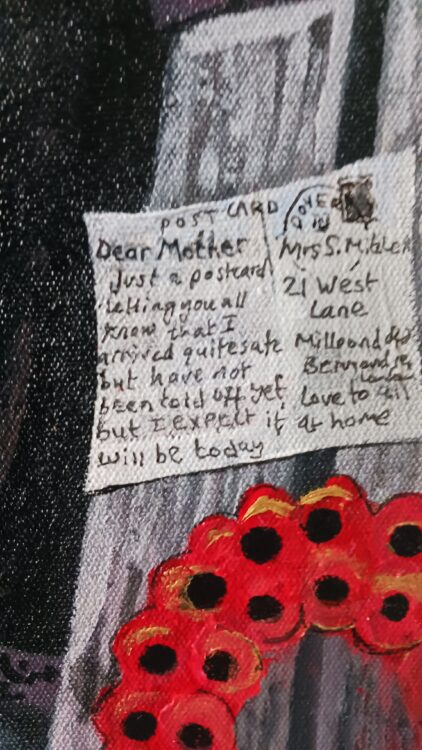 POST CARD
DOVER
Dear Mother
Just a postcard
letting you all
know that I
arrived quite safe
but have not
been told off yet
but I expect it
will be today
Mrs S. Mitchell
21 West
Lane
Millpond
Bermondsey
London
Love to all
at home